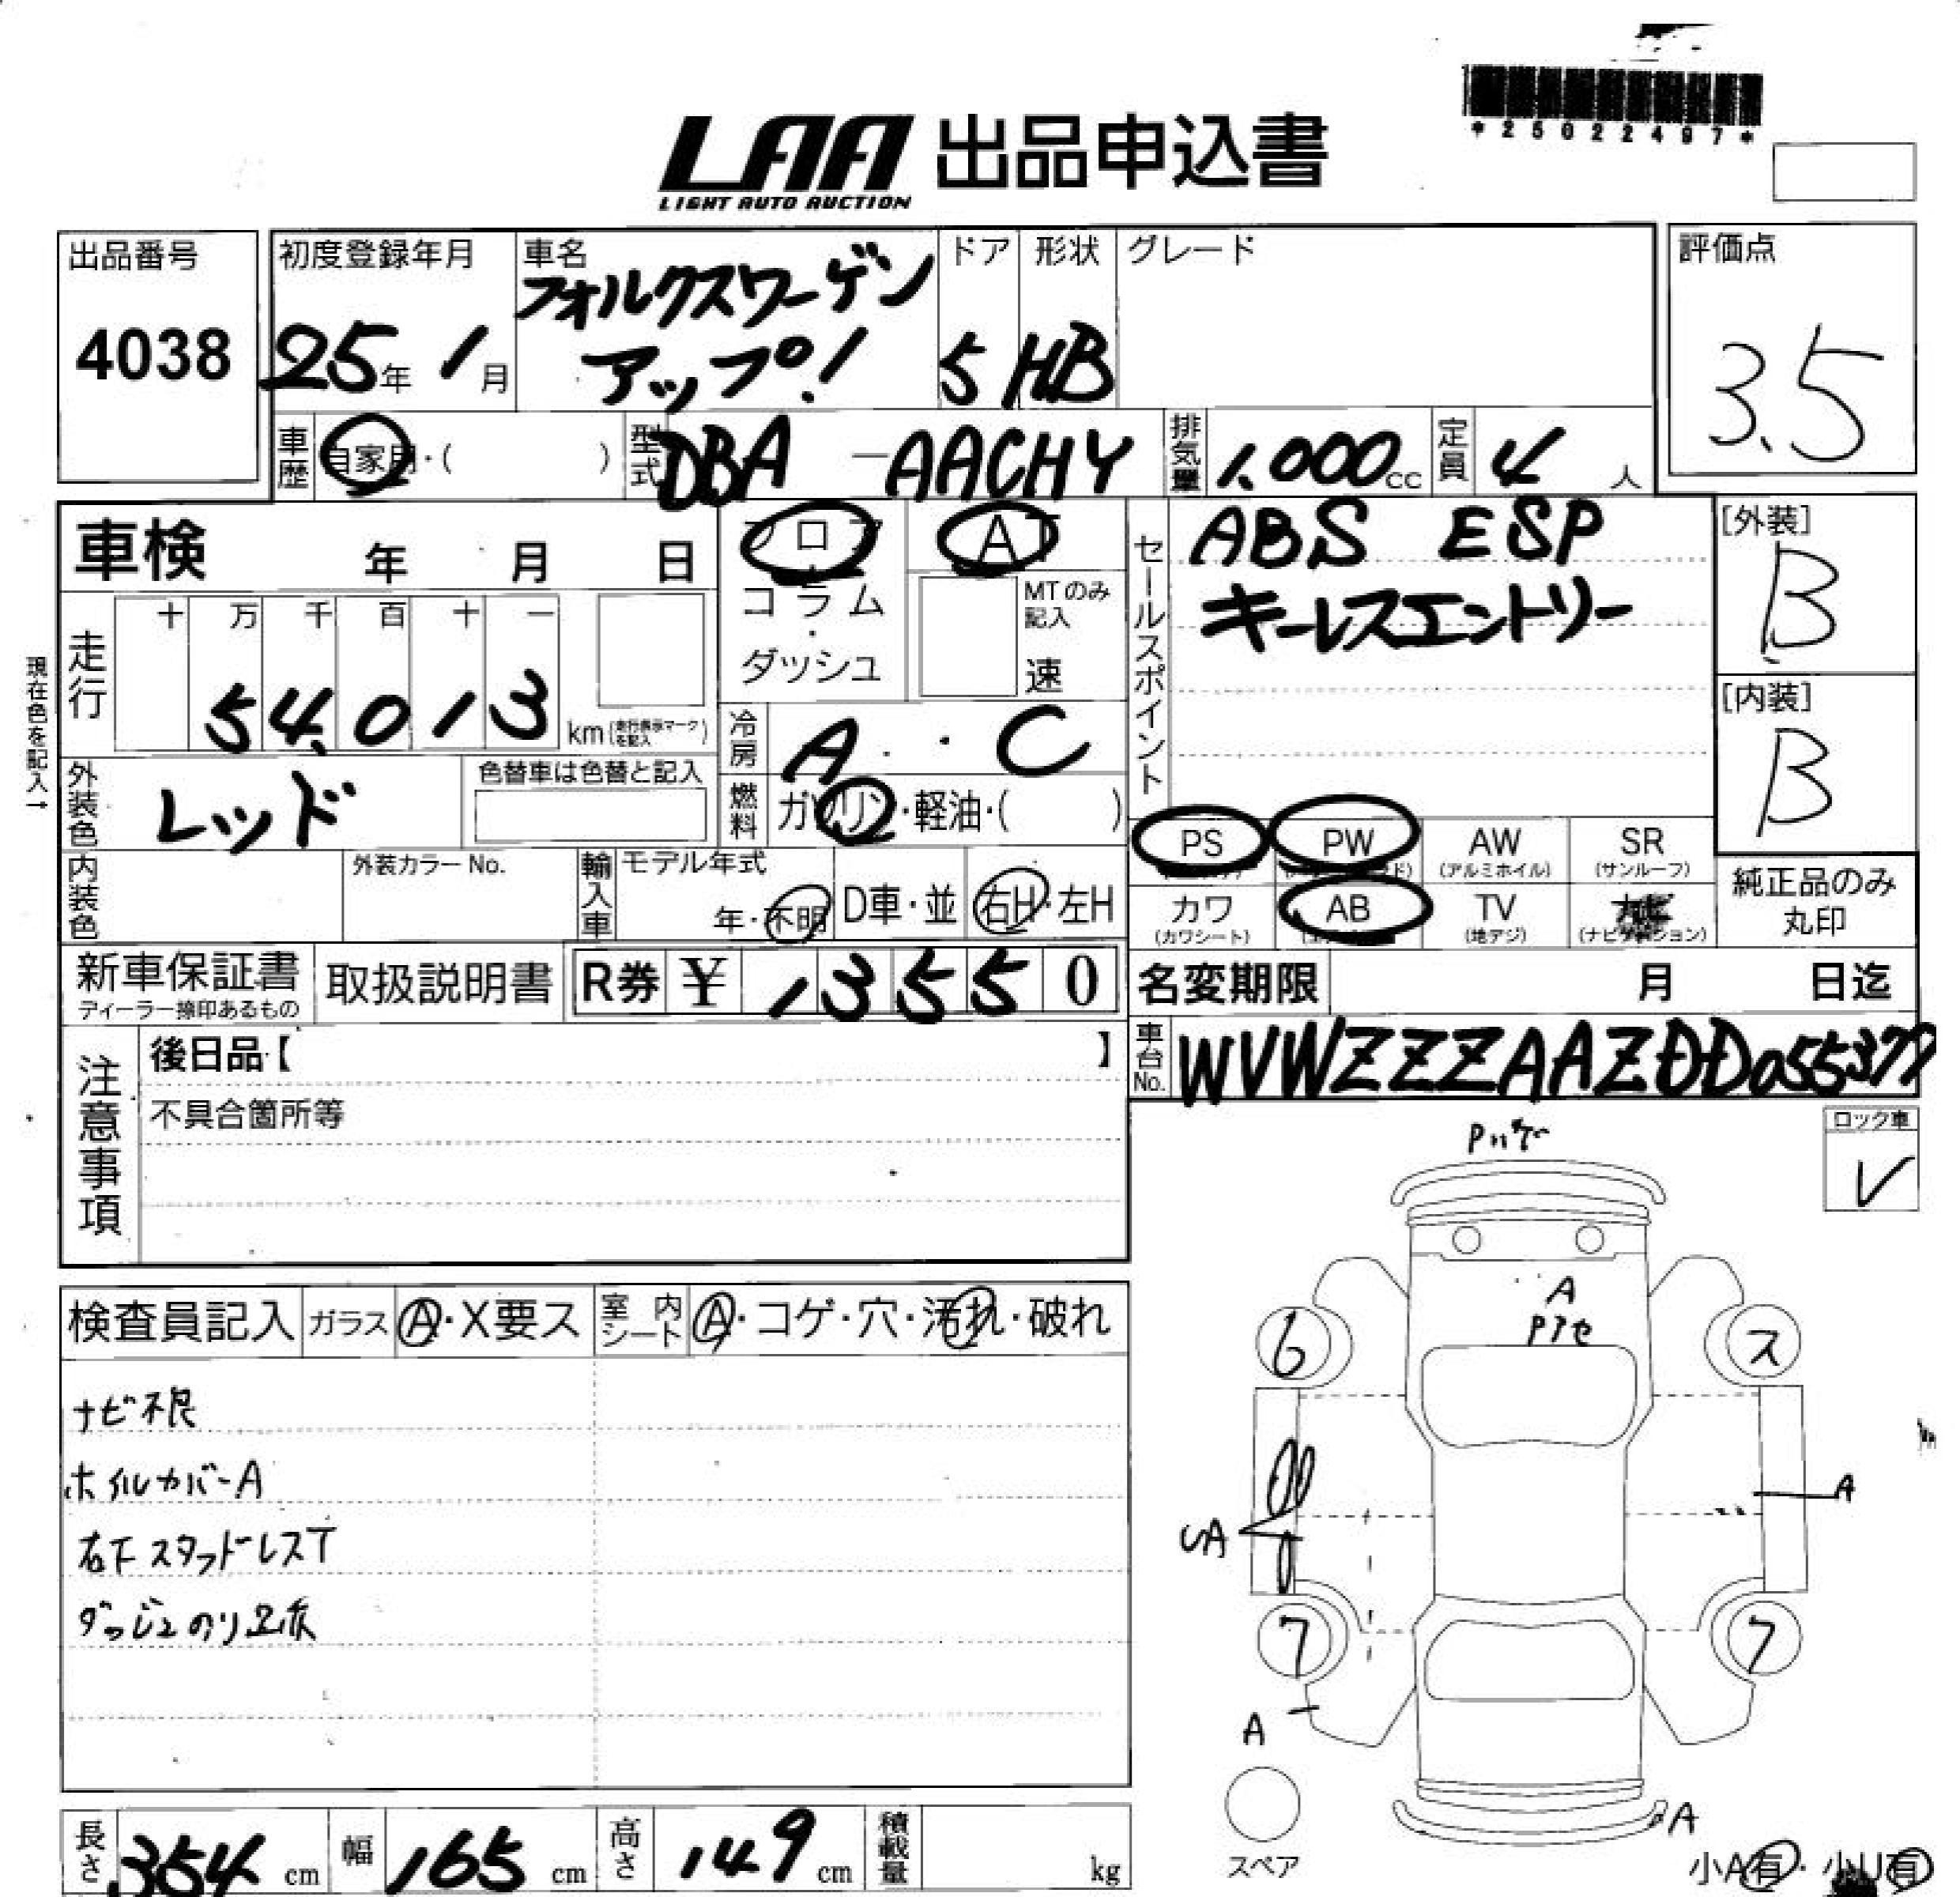 *25022497*
LAA 出品申込書
LIGHT AUTO AUCTION
出品番号
4038
初度登録年月
25年 1月
車名
フォルクスワーゲン
アップ!
ドア
5
形状
HB
グレード
評価点
3.5
車歴 自家用・( )
型式 DBA - AACHY
排気量 1.000cc
定員 4人
車検 年 月 日
フロア
コラム
・
ダッシュ
AT
MTのみ
記入
速
セールスポイント
ABS ESP
キーレスエントリー
[外装]
B
[内装]
B
現在色を記入→
走行
十 万 千 百 十 一
54,013
km(走行表示マークを記入)
冷房 A・C
外装色 レッド
色替車は色替と記入
燃料 ガソリン・軽油・( )
PS
PW
AW
(アルミホイル)
SR
(サンルーフ)
内装色
外装カラーNo.
輸入車
モデル年式
年・不明
D車・並
右H・左H
カワ
(カワシート)
AB
TV
(地デジ)
(ナビゲーション)
純正品のみ
丸印
新車保証書
ディーラー捺印あるもの
取扱説明書
R券 ¥ 13550
名変期限 月 日迄
車台No. WVWZZZAAZDD055377
注意事項
後日品【 】
不具合箇所等
ロック車
✓
Pハゲ
A
Pアセ
6
ス
A
UA
7
7
A
A
スペア
小A有・小U有
検査員記入
ガラス A・X要ス
室内シート A・コゲ・穴・汚れ・破れ
ナビ不良
ホイルカバーA
右下スタッドレスT
ダッシュのり跡
長さ 354cm
幅 165cm
高さ 149cm
積載量 kg